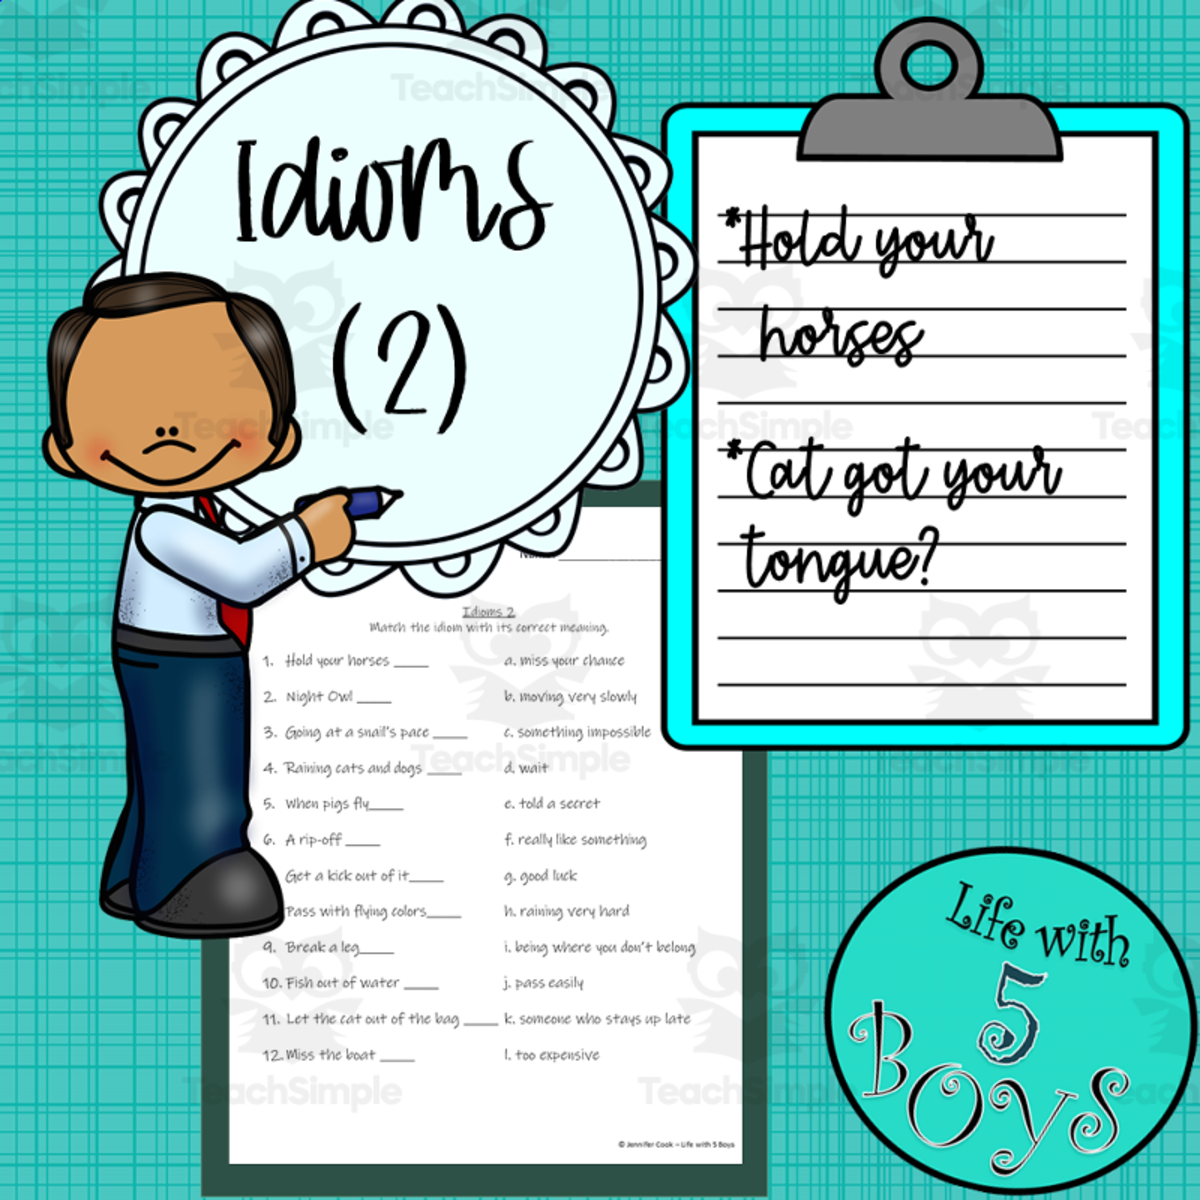 Idioms
(2)
*Hold your
horses
*Cat got your
tongue?
Idioms 2
Match the idiom with its correct meaning.
1. Hold your horses ____ a. miss your chance
2. Night Owl ____ b. moving very slowly
3. Going at a snail's pace ____ c. something impossible
4. Raining cats and dogs ____ d. wait
5. When pigs fly____ e. told a secret
6. A rip-off ____ f. really like something
Get a kick out of it____ g. good luck
Pass with flying colors____ h. raining very hard
9. Break a leg____ i. being where you don't belong
10. Fish out of water ____ j. pass easily
11. Let the cat out of the bag ____ k. someone who stays up late
12. Miss the boat ____ l. too expensive
© Jennifer Cook ~ Life with 5 Boys
Life with
5
Boys
TeachSimple
TeachSimple
TeachSimple
TeachSimple
TeachSimple
TeachSimple